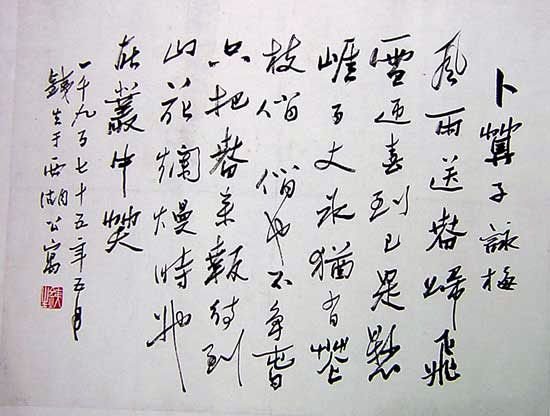 卜算子 詠梅
風雨送春歸飛
雪迎春到已是懸
崖百丈冰猶有花
枝俏 俏也不争春
只把春來報待到
山花爛熳時她
在叢中笑
一千九百七十五年五月
于西湖公寓